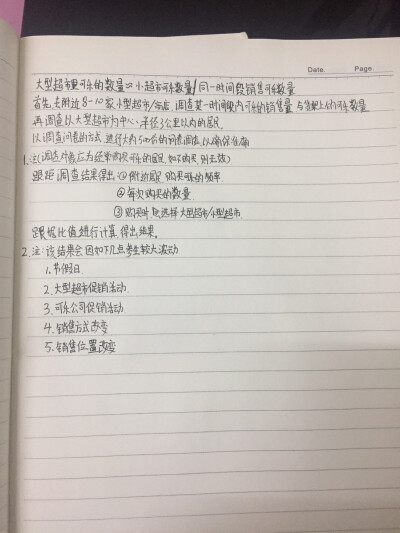 Date. Page.
大型超市里可乐的数量=小超市可乐数量/同一时间段销售可乐数量
首先,去附近8-10家小型超市/商店,调查某一时间段内可乐的销售量与货架上的可乐数量
再调查以大型超市为中心,半径3公里以内的居民
以调查问卷的方式,进行大约500份的问卷调查,以确保准确
1.注(调查对象应为经常购买可乐的居民,如不购买,则无效)
跟距调查结果得出①附近居民购买可乐的频率
②每次购买的数量
③购买时是选择大型超市/小型超市
跟据比值进行计算,得出结果。
2.注:该结果会因如下几点参生较大波动
1.节假日
2.大型超市促销活动
3.可乐公司促销活动
4.销售方式改变
5.销售位置改变